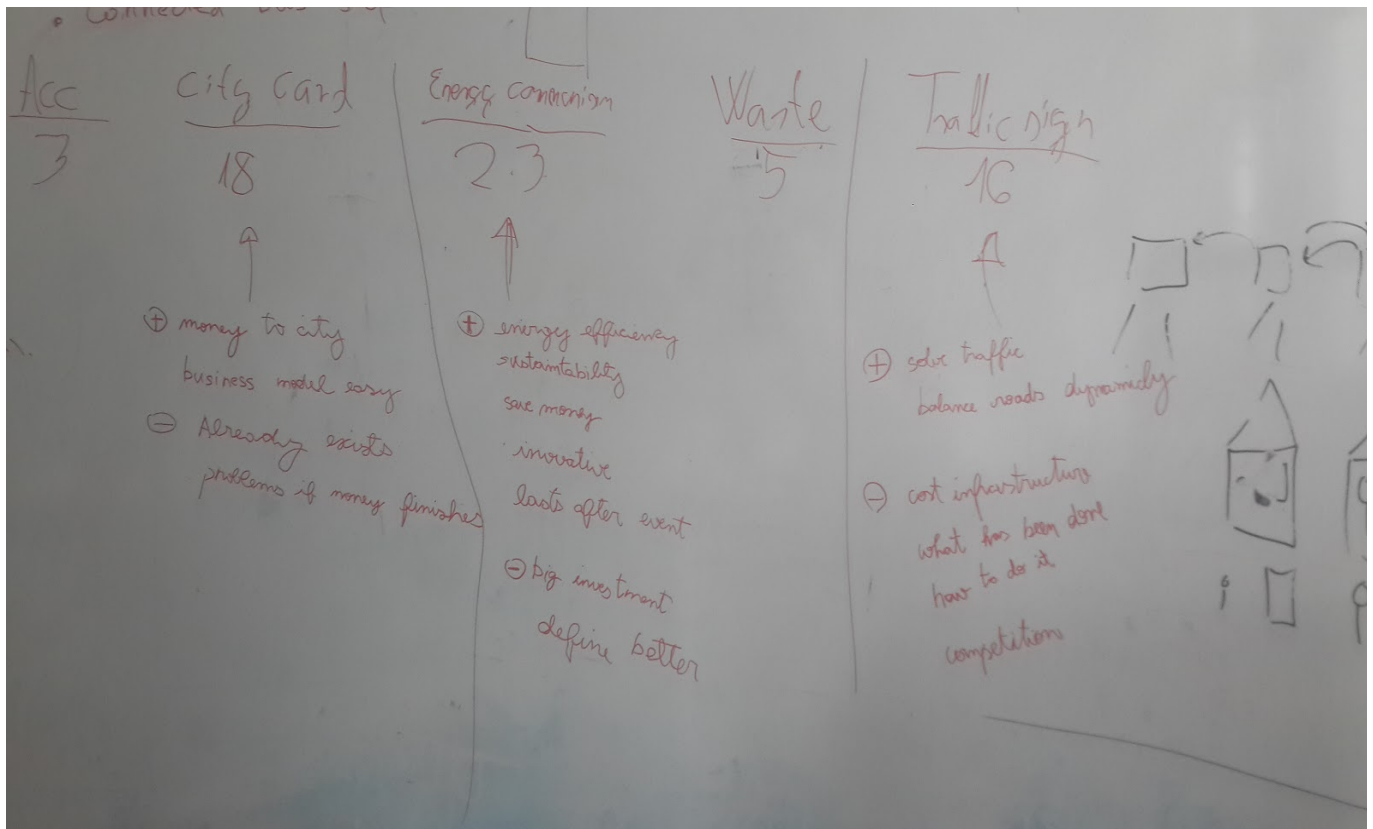 • Connected
Acc
3
City Card
18
+ money to city
business model easy
- Already exists
problems if money finishes
Energy
2.3
+ energy efficiency
sustaintability
save money
inovative
lasts after event
- big investment
define better
Waste
5
Traffic sign
16
+ solve traffic
balance roads dynamicly
- cost infrastructure
what has been done
how to do it
competition